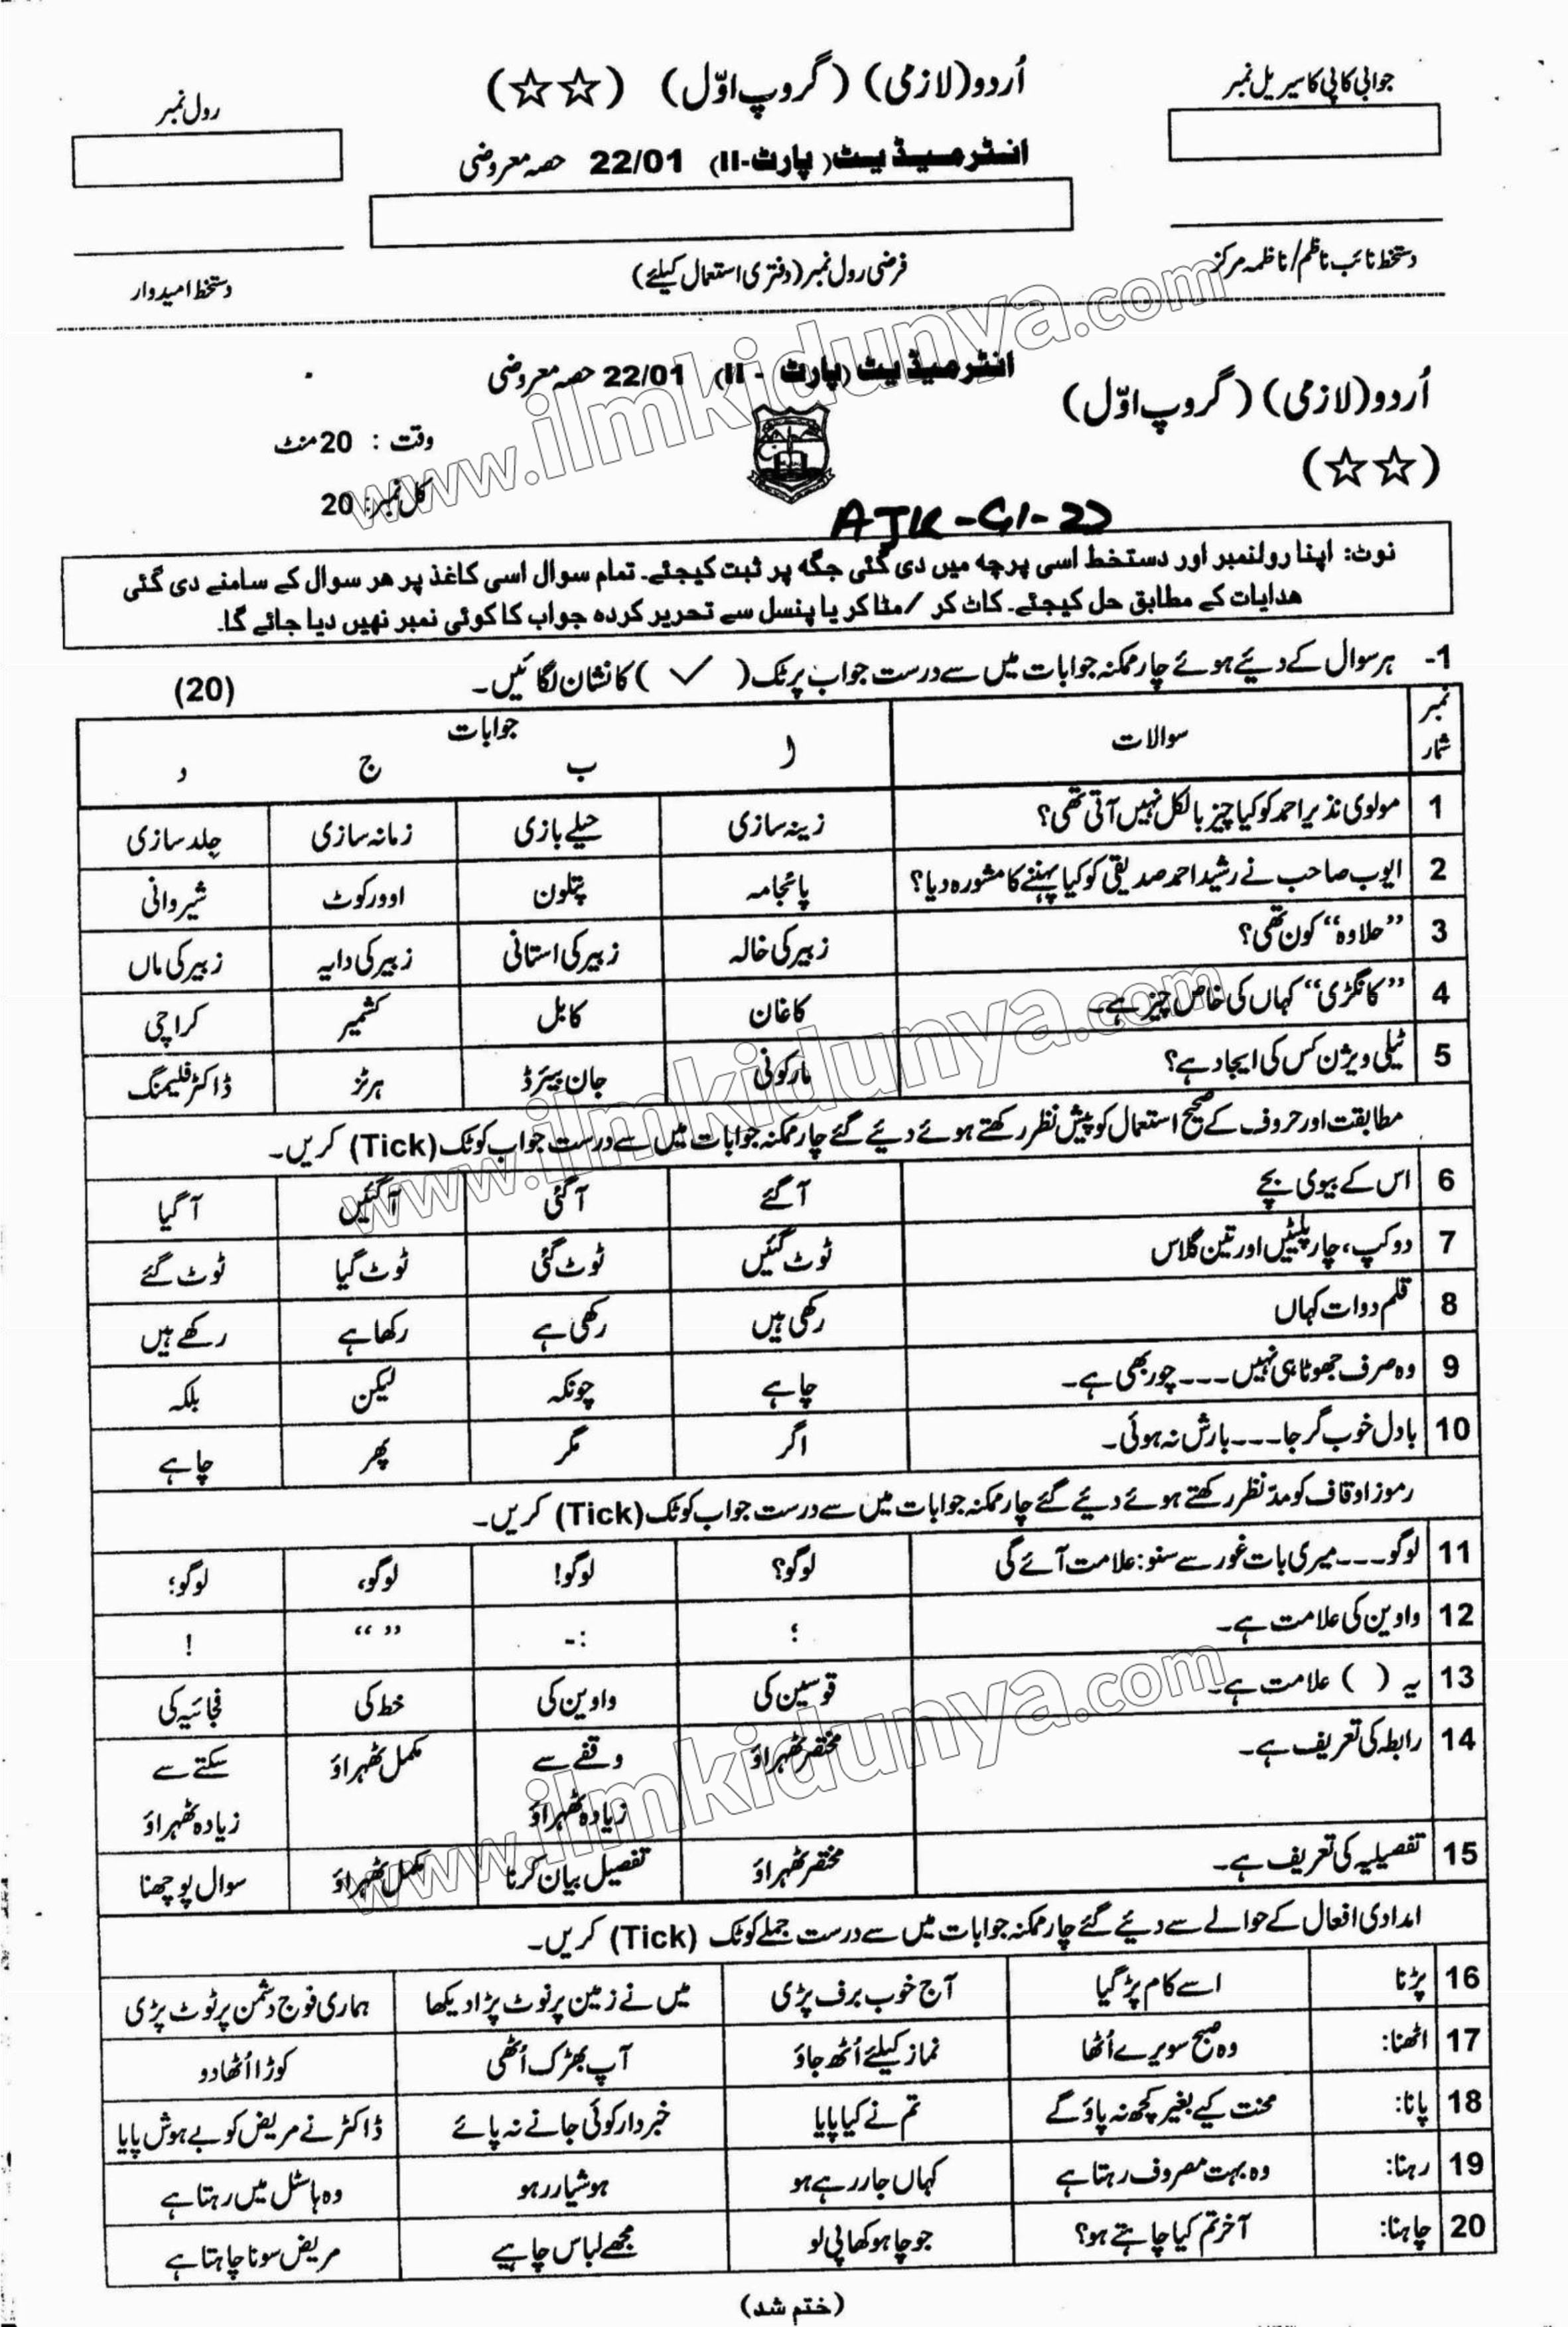 جوابی کاپی کا سیریل نمبر
اُردو (لازمی) (گروپ اوّل) (☆☆)
رول نمبر
انٹرمیڈیٹ (پارٹ-II) 22/01 حصہ معروضی
دستخط نائب ناظم/ناظمہ مرکز
فرضی رول نمبر (دفتری استعمال کیلئے)
دستخط امیدوار
انٹرمیڈیٹ (پارٹ - II) 22/01 حصہ معروضی
اُردو (لازمی) (گروپ اوّل)
وقت : 20 منٹ
(☆☆)
کل نمبر: 20
AJK-G1-22
نوٹ: اپنا رولنمبر اور دستخط اسی پرچہ میں دی گئی جگہ پر ثبت کیجئے۔ تمام سوال اسی کاغذ پر ھر سوال کے سامنے دی گئی
ھدایات کے مطابق حل کیجئے۔ کاٹ کر /مٹا کر یا پنسل سے تحریر کردہ جواب کا کوئی نمبر نھیں دیا جائے گا۔
1- ہر سوال کے دیئے ہوئے چار ممکنہ جوابات میں سے درست جواب پر ٹک ( ✓ ) کا نشان لگائیں۔ (20)
نمبر شمار سوالات جوابات
ا ب ج د
1 مولوی نذیر احمد کو کیا چیز بالکل نہیں آتی تھی؟ زینہ سازی حیلے بازی زمانہ سازی جلد سازی
2 ایوب صاحب نے رشید احمد صدیقی کو کیا پہننے کا مشورہ دیا؟ پائجامہ پتلون اوورکوٹ شیروانی
3 ”حلاوہ“ کون تھی؟ زبیر کی خالہ زبیر کی استانی زبیر کی دایہ زبیر کی ماں
4 ”کانگڑی“ کہاں کی خاص چیز ہے۔ کاغان کابل کشمیر کراچی
5 ٹیلی ویژن کس کی ایجاد ہے؟ مارکونی جان بیئرڈ ہرٹز ڈاکٹر فلیمنگ
مطابقت اور حروف کے صحیح استعمال کو پیش نظر رکھتے ہوئے دیئے گئے چار ممکنہ جوابات میں سے درست جواب کو ٹک (Tick) کریں۔
6 اس کے بیوی بچے آگئے آگئی آگئیں آگیا
7 دو کپ، چار پلیٹیں اور تین گلاس ٹوٹ گئیں ٹوٹ گئی ٹوٹ گیا ٹوٹ گئے
8 قلم دوات کہاں رکھی ہیں رکھی ہے رکھا ہے رکھے ہیں
9 وہ صرف جھوٹا ہی نہیں ---- چور بھی ہے۔ چاہے چونکہ لیکن بلکہ
10 بادل خوب گرجا ---- بارش نہ ہوئی۔ اگر مگر پھر چاہے
رموز اوقاف کو مدّ نظر رکھتے ہوئے دیئے گئے چار ممکنہ جوابات میں سے درست جواب کو ٹک (Tick) کریں۔
11 لوگو ---- میری بات غور سے سنو: علامت آئے گی لوگو؟ لوگو! لوگو، لوگو؛
12 واوین کی علامت ہے۔ ؛ :- ” “ !
13 یہ ( ) علامت ہے۔ قوسین کی واوین کی خط کی فجائیہ کی
14 رابطہ کی تعریف ہے۔ مختصر ٹھہراؤ وقفے سے زیادہ ٹھہراؤ مکمل ٹھہراؤ سکتے سے زیادہ ٹھہراؤ
15 تفصیلیہ کی تعریف ہے۔ مختصر ٹھہراؤ تفصیل بیان کرنا مکمل ٹھہراؤ سوال پوچھنا
امدادی افعال کے حوالے سے دیئے گئے چار ممکنہ جوابات میں سے درست جملے کو ٹک (Tick) کریں۔
16 پڑنا اسے کام پڑ گیا آج خوب برف پڑی میں نے زمین پر نوٹ پڑا دیکھا ہماری فوج دشمن پر ٹوٹ پڑی
17 اٹھنا: وہ صبح سویرے اُٹھا نماز کیلئے اُٹھ جاؤ آپ بھڑک اُٹھی کوڑا اُٹھا دو
18 پانا: محنت کیے بغیر کچھ نہ پاؤ گے تم نے کیا پایا خبردار کوئی جانے نہ پائے ڈاکٹر نے مریض کو بے ہوش پایا
19 رہنا: وہ بہت مصروف رہتا ہے کہاں جا رہے ہو ہوشیار رہو وہ ہاسٹل میں رہتا ہے
20 چاہنا: آخر تم کیا چاہتے ہو؟ جو چاہو کھا پی لو مجھے لباس چاہیے مریض سونا چاہتا ہے
(ختم شد)
www.ilmkidunya.com
www.ilmkidunya.com
www.ilmkidunya.com